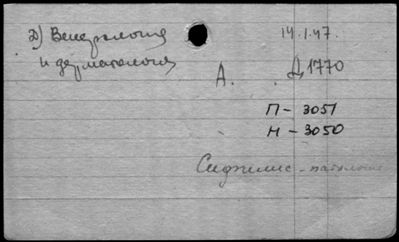 2) Венерология 14.1.47.
и дерматология
А. Д1770
П - 3051
Н - 3050
Сифилис - патология